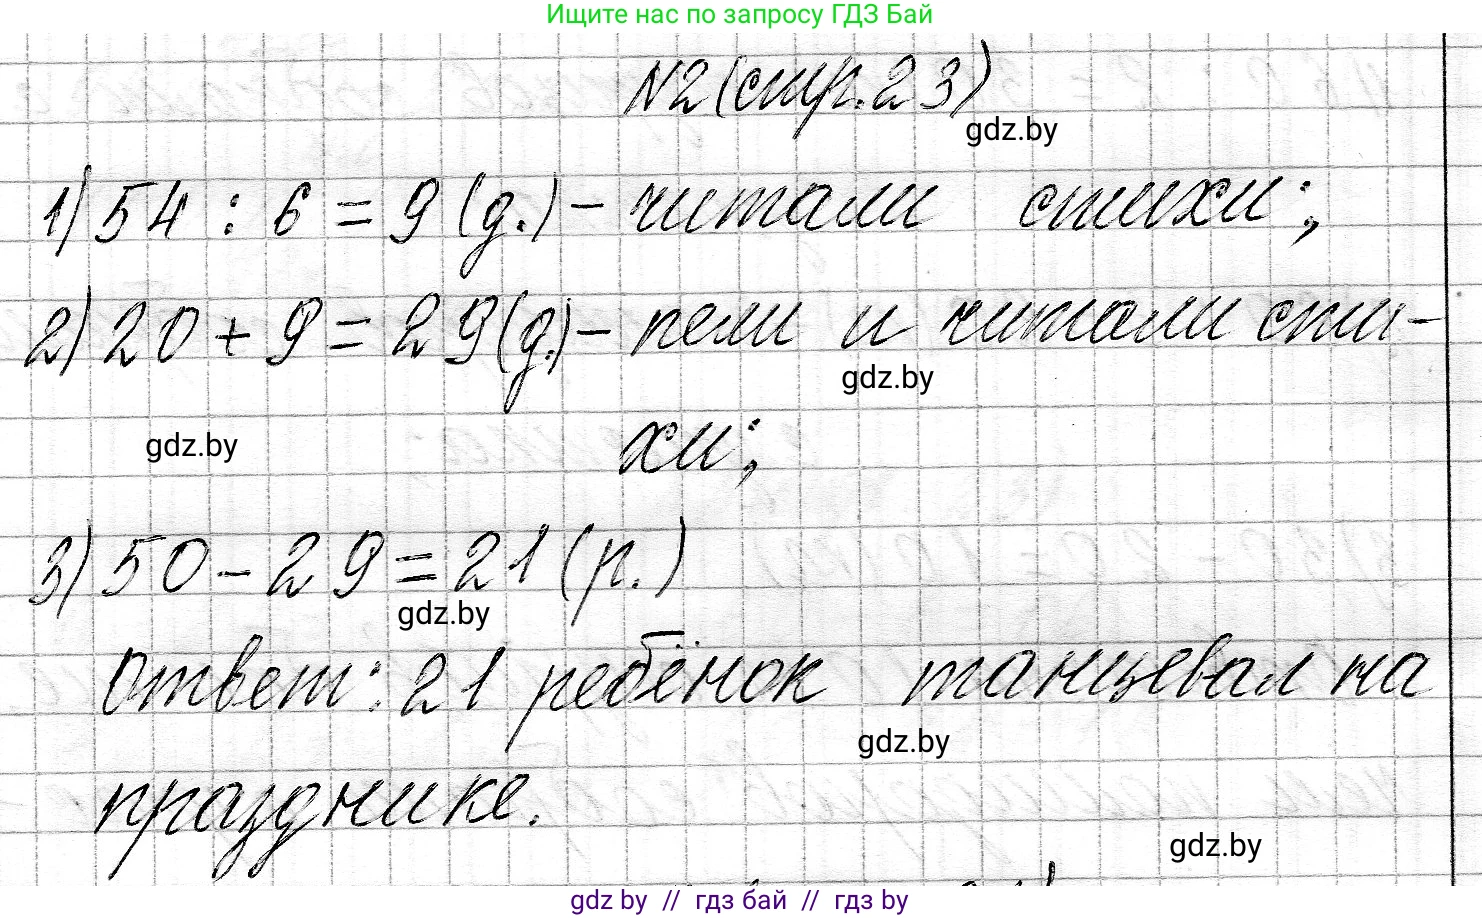 Ищите нас по запросу ГДЗ Бай
№2 (стр. 23)
gdz.by
1) 54 : 6 = 9 (д.) – читали стихи;
2) 20 + 9 = 29 (д.) – пели и читали сти-
gdz.by
gdz.by
хи;
3) 50 – 29 = 21 (р.)
gdz.by
Ответ: 21 ребёнок танцевал на
gdz.by
празднике.
gdz.by
gdz by // гдз бай // гдз by